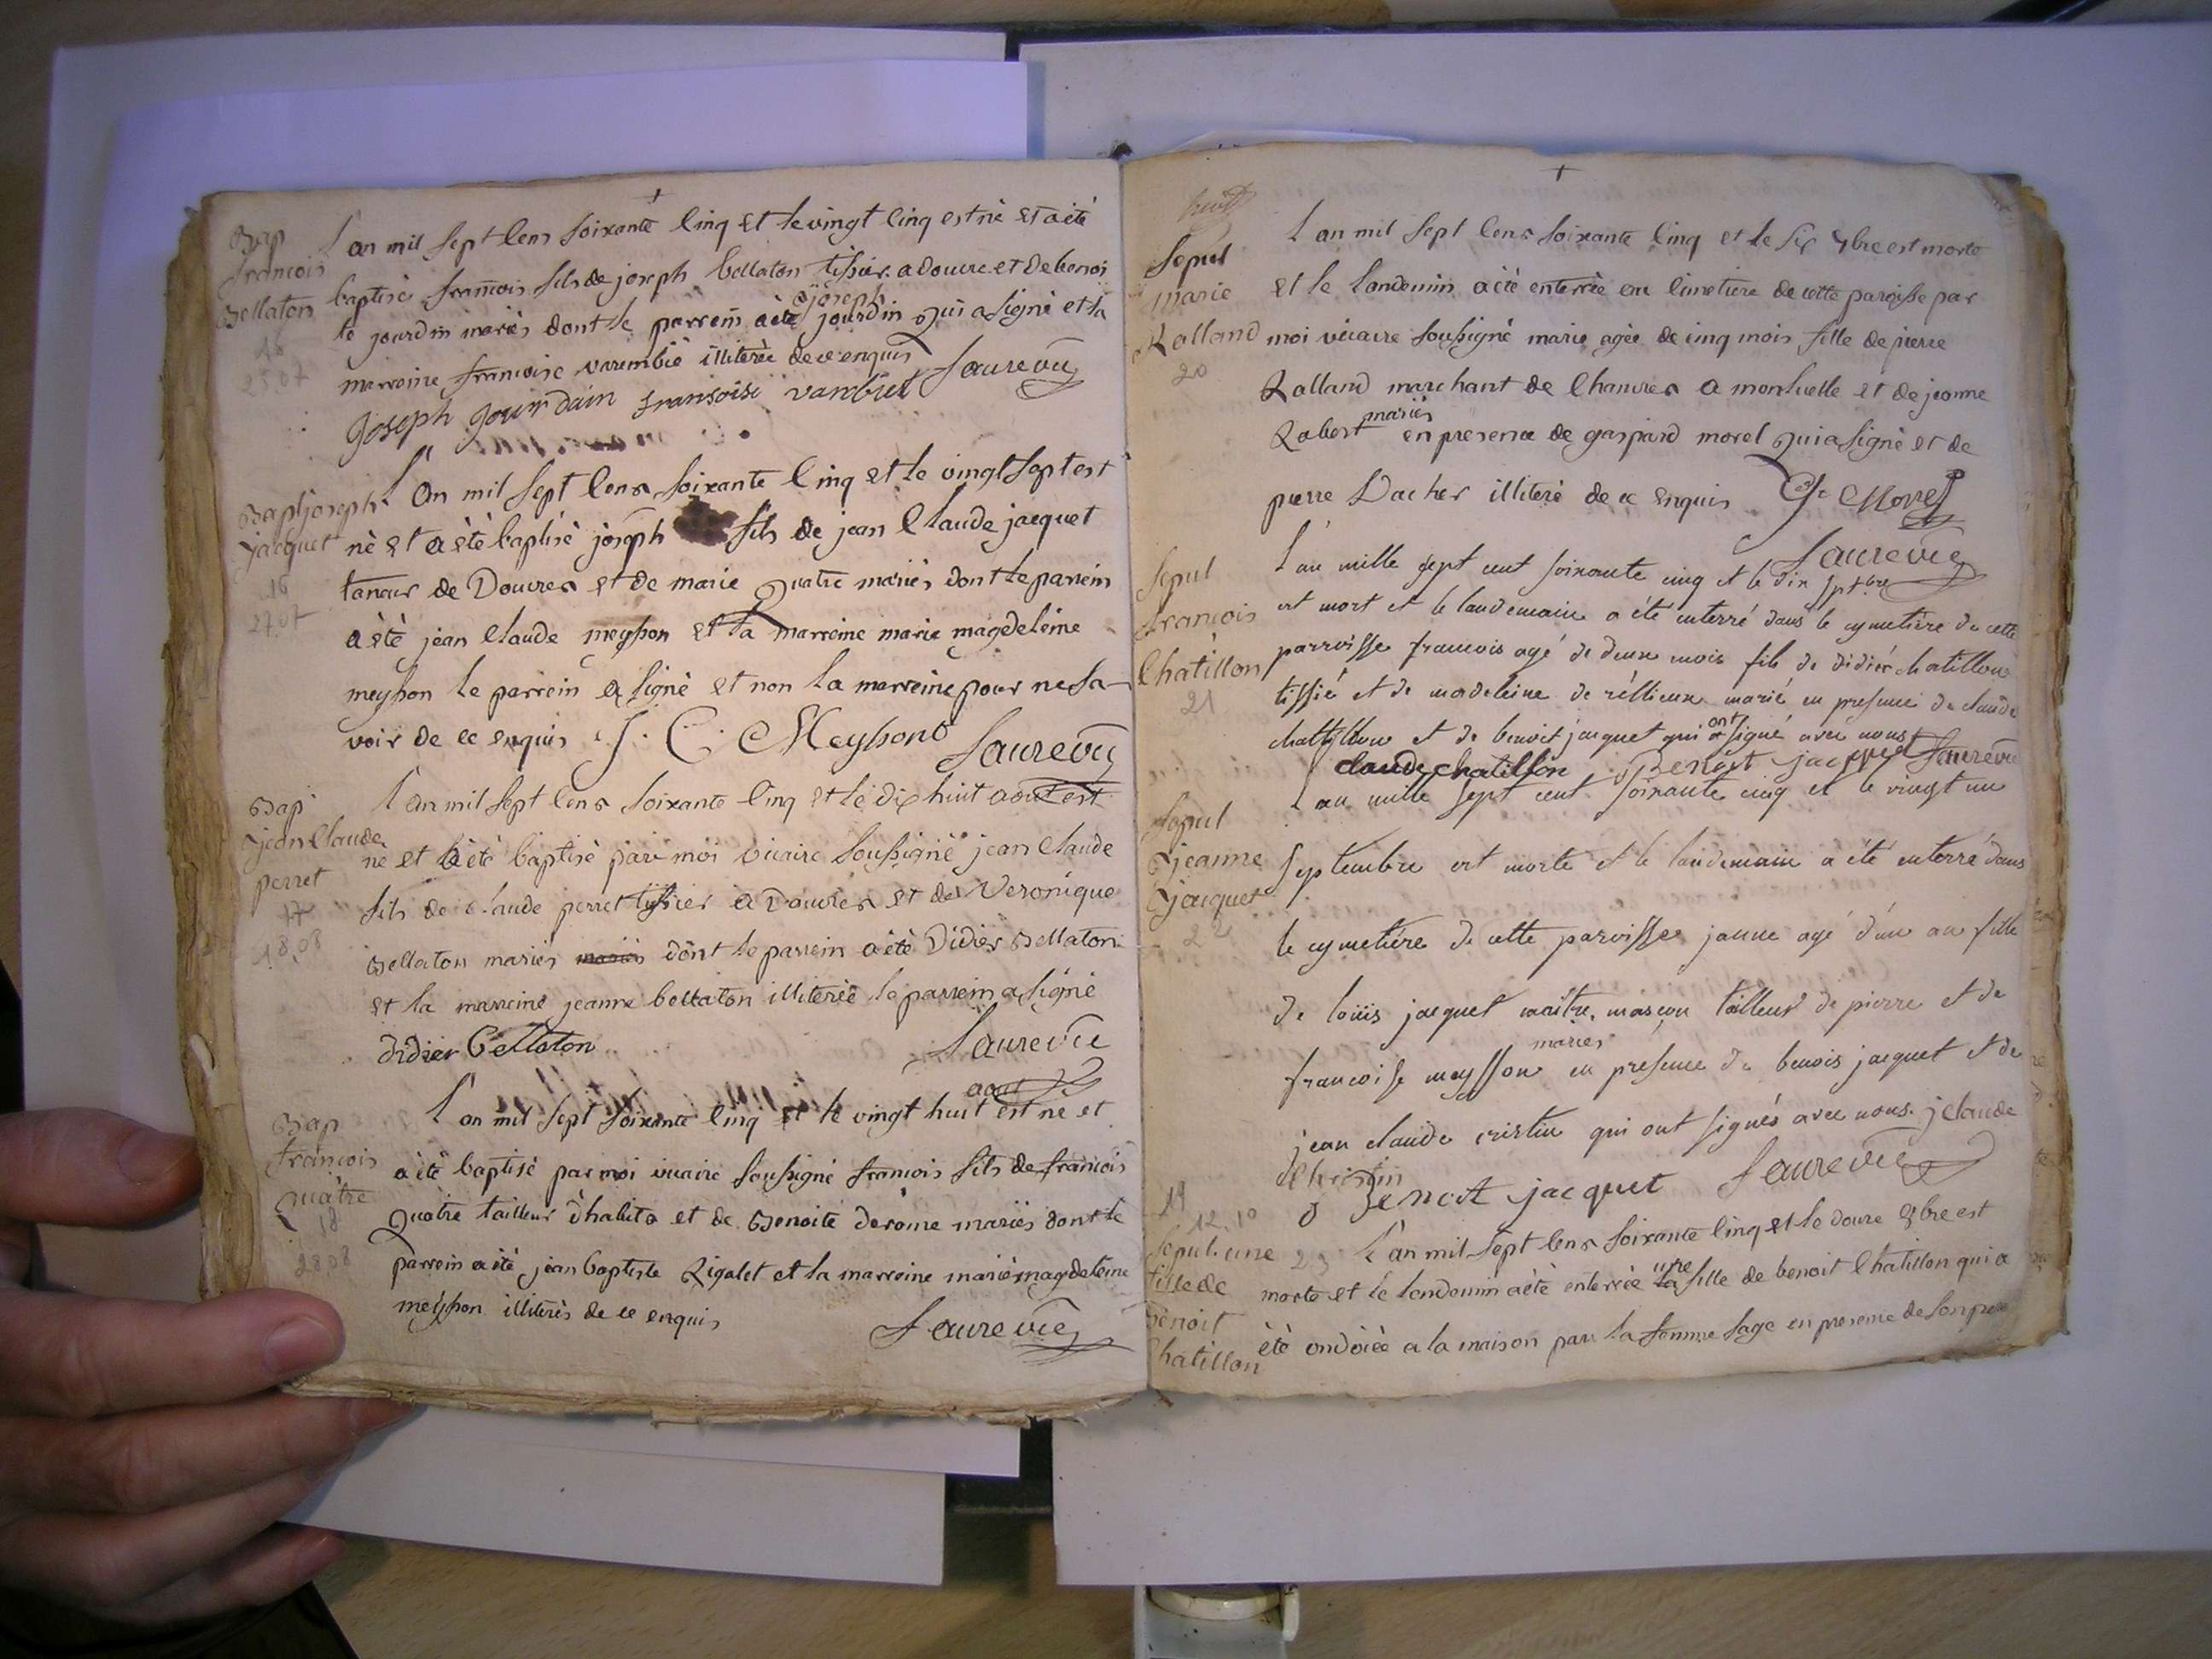 Bap
francois
Bellaton
16
25.07
L'an mil sept cens soixante cinq et le vingt cinq est né et a été
baptisé francois fils de joseph bellaton tissier a douvre et de benoi
te jourdin mariés dont le parrein a été joseph jourdin qui a signé et la
marreine francoise varembié illiterée de ce enquis faure vic
joseph jourdain fransoise vanbiet
Bap joseph
jacquet
16
27.07
L'an mil sept cens soixante cinq et le vingt sept est
né et a été baptisé joseph fils de jean claude jacquet
taneur de Douvres et de marie quatre mariés dont le parrein
a été jean claude meysson et la marreine marie magdeleine
meysson le parrein a signé et non la marreine pour ne sa-
voir de ce enquis J. C. Meysson faure vic
Bap
jean claude
perret
17
18.08
L'an mil sept cens soixante cinq et le dix huit aout est
né et a été baptisé par moi vicaire soussigné jean claude
fils de claude perret tissier a Douvres et de Veronique
Bellaton mariés mariés dont le parrein a été Didier Bellaton
et la marreine jeanne bellaton illiterée le parrein a signé
didier Bellaton faure vic
Bap
francois
quatre
18
28.08
aout
L'an mil sept soixante cinq et le vingt huit est né et
a été baptisé par moi vicaire soussigné francois fils de francois
quatre tailleur d'habits et de Benoite derome mariés dont le
parrein a été jean baptiste Rigalet et la marreine marie magdeleine
meysson illiterés de ce enquis
faure vic
huit
Sepul
marie
Ralland
20
L'an mil sept cens soixante cinq et le six 7bre est morte
et le landemin a été enterrée au cimetiere de cette paroisse par
moi vicaire soussigné marie agée de cinq mois fille de pierre
Ralland marchant de chanvres a monluelle et de jeanne
Robert mariés en presence de gaspard morel qui a signé et de
pierre Dacher illiteré de ce enquis G. Morel
faure vic
Sepul
francois
Chatillon
21
L'an mille sept cent soixante cinq et le dix sptbre
est mort et le landemain a été enterré dans le cymetiére de cette
parroisse francois agé de deux mois fils de didiér chatillon
tissié et de madeleine de réllieux marié en presence de claude
chattillon et de benoit jacquet qui ont signé avec nous
claude chatillon Benoit jacquet faure vic
Sepul
jeanne
jacquet
22
L'an mille sept cent soixante cinq et le vingt un
septembre est morte et le landemain a été enterré dans
le cymetiére de cette paroisse janne agé d'un an fille
de louis jacquet maitre mascon tailleur de pierre et de
francoisse meysson mariés en presence de benois jacquet et de
jean claude cristin qui ont signés avec nous. j claude
christin
Benoit jacquet faure vic
19
12.10
Sepul. une
fille de
Benoit
Chatillon
23
L'an mil sept cens soixante cinq et le douze 8bre est
morte et le landemin a été enterrée une fille de benoit Chatillon qui a
été ondoiée a la maison par la femme sage en presence de son pere